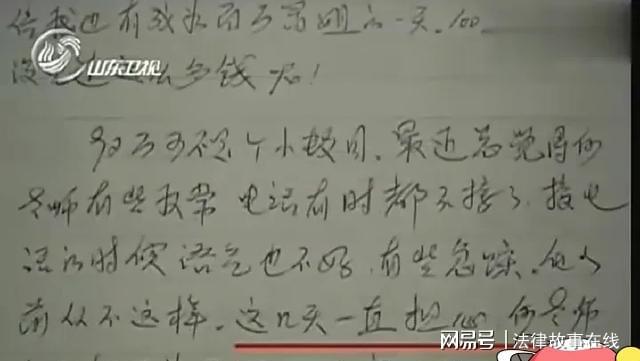 信我也有成为百万富姐的一天。但
山东卫视
这么多钱呢!
万可不是个小数目,最近总觉得何
老师有些反常 电话有时都不接了,接电
话的时候语气也不好,有些急躁,他以
前从不这样,这几天一直担心何老师
网易号 法律故事在线